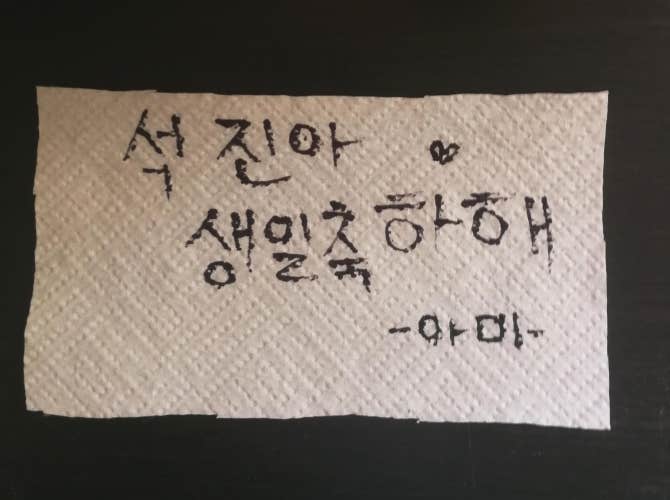 석진아
생일축하해
-아미-